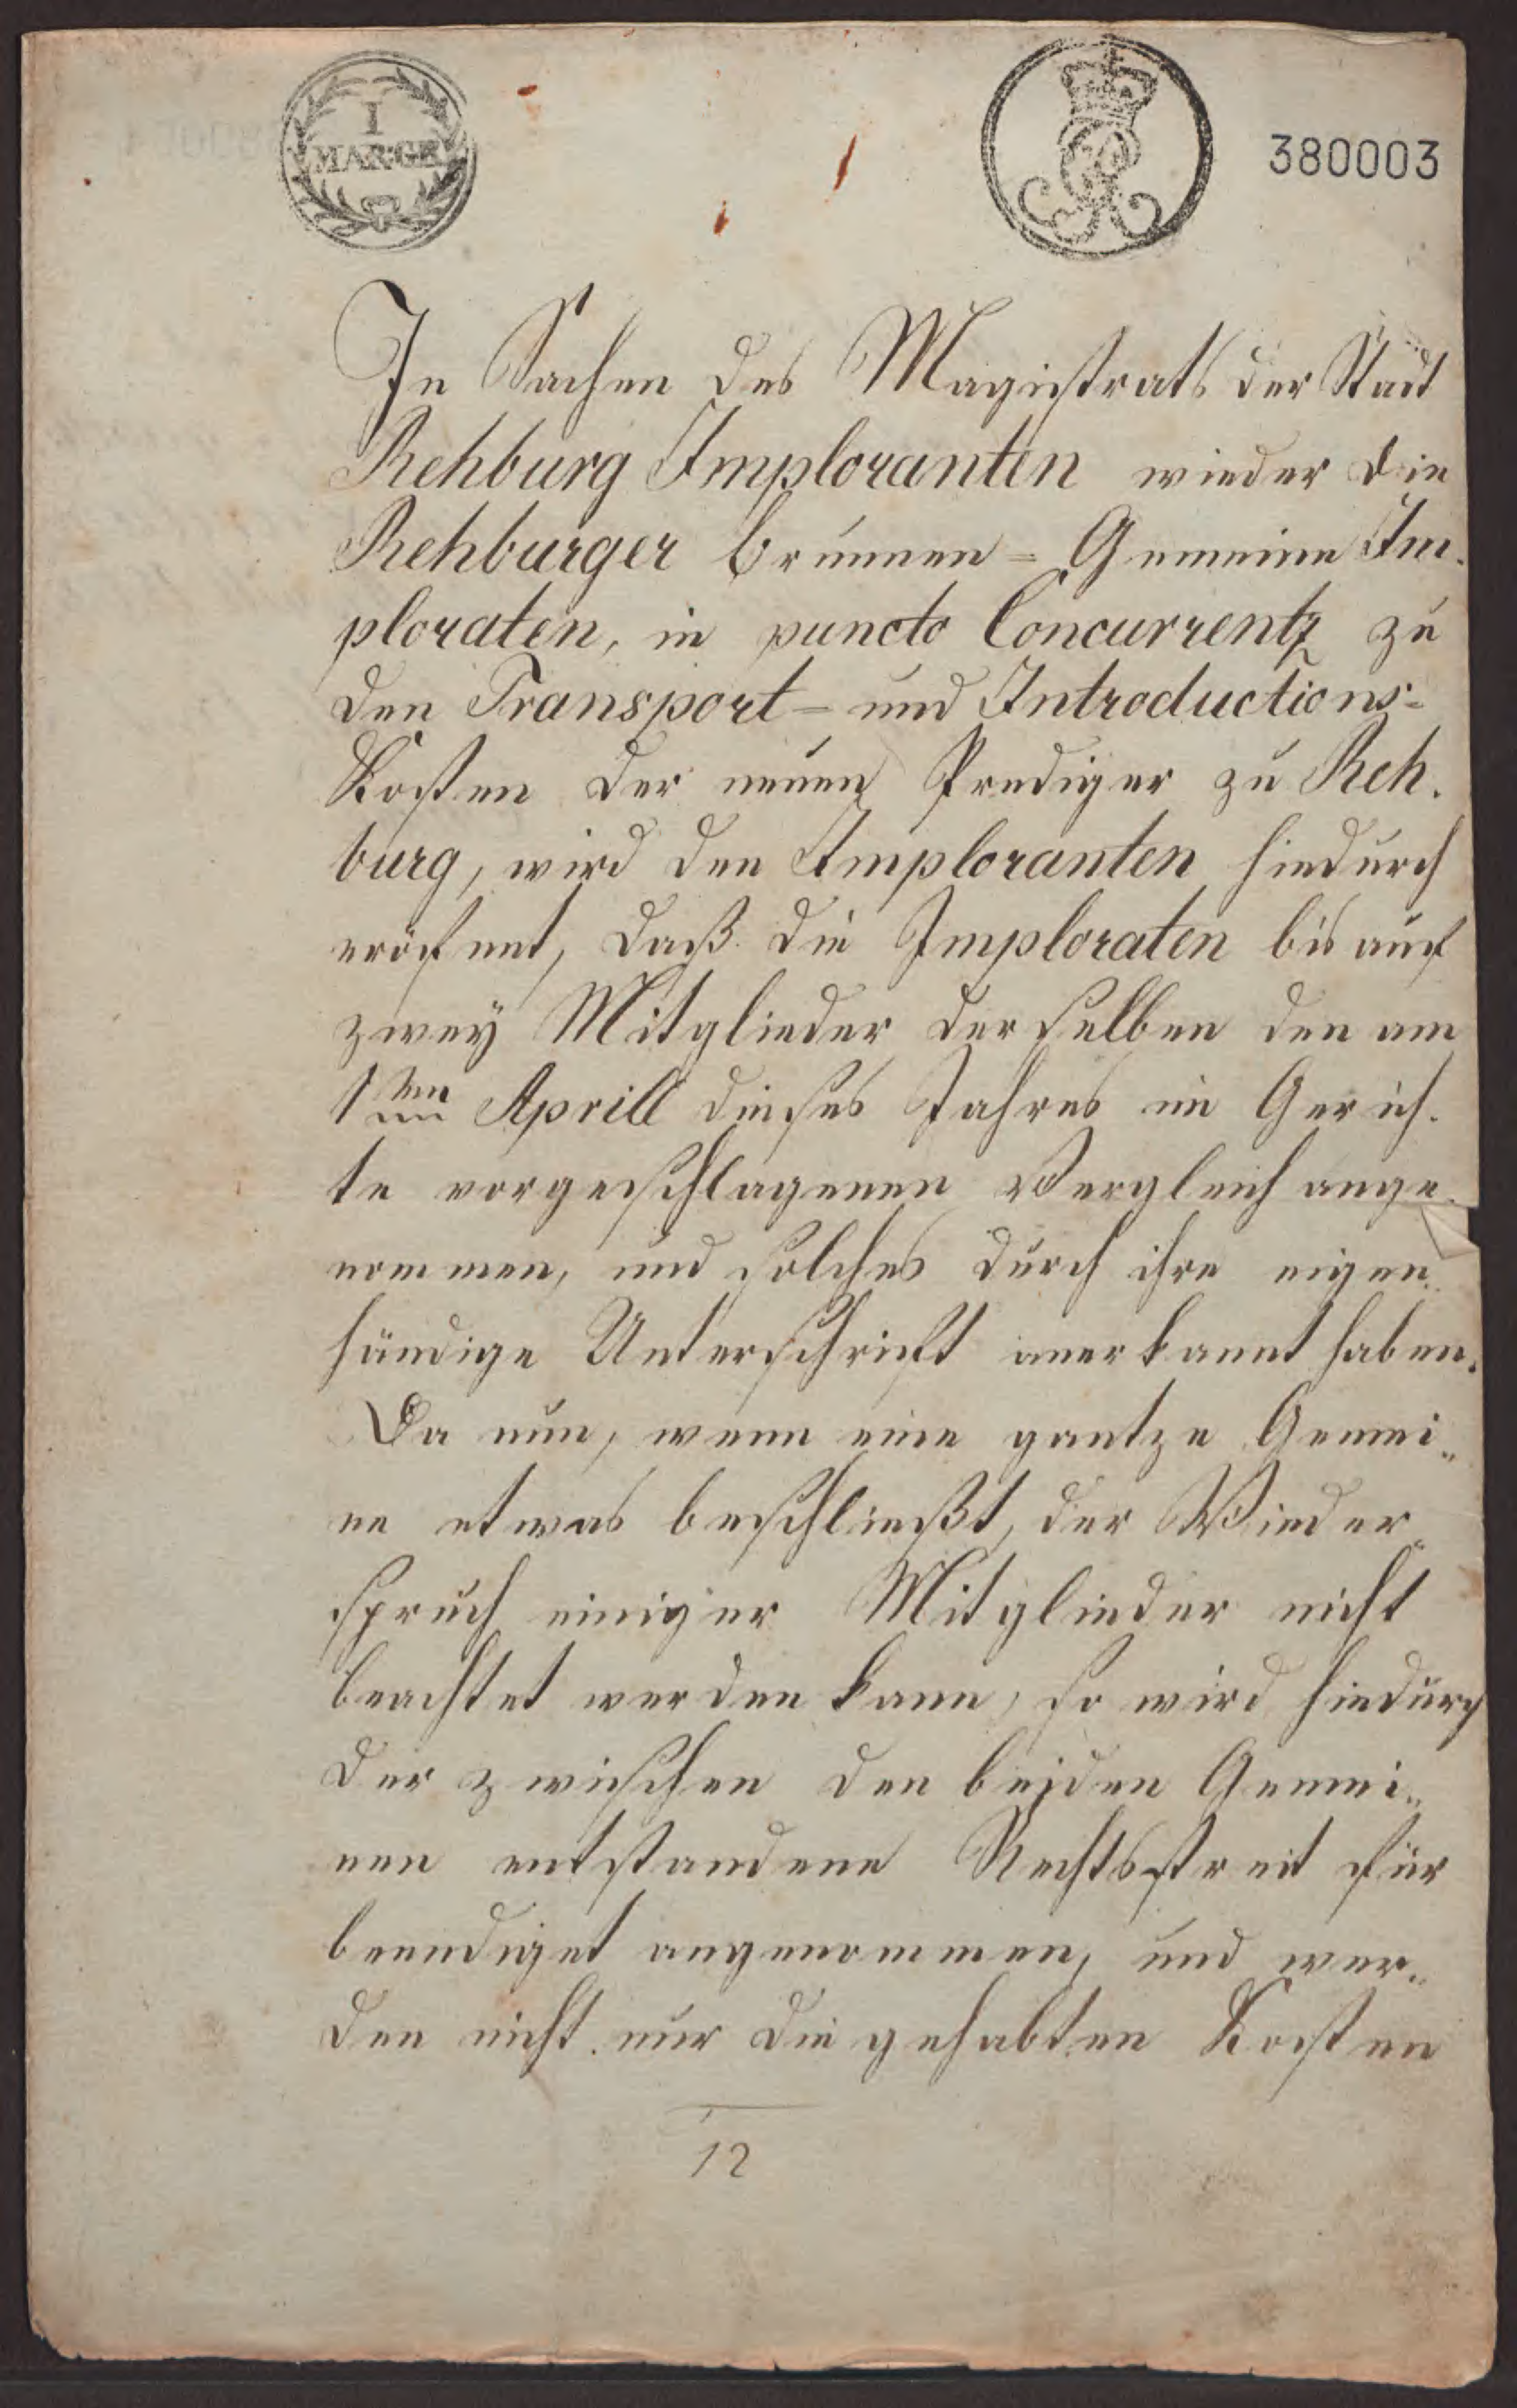 I
MAR:GR
380003
In Sachen des Magistrats der Stadt
Rehburg Imploranten wieder die
Rehburger Brunnen=Gemeine Im.
ploraten, in puncto Concurrentz zu
den Transport= und Introductions=
Kosten der neuen Prediger zu Reh.
burg, wird den Imploranten hiedurch
eröfnet, daß die Imploraten bis auf
zwey Mitglieder derselben den am
1ten Aprill dieses Jahres im Gerich.
te vorgeschlagenen Vergleich ange.
nommen, und solches durch ihre eigen„
händige Unterschrift anerkannt haben.
Da nun, wenn eine gantze Gemei„
ne etwas beschließt, der Wieder„
spruch einiger Mitglieder nicht
beachtet werden kann, so wird hiedurch
der zwischen den beiden Gemei„
nen entstandene Rechtsstreit für
beendiget angenommen, und wer„
den nicht nur die gehabten Kosten
12